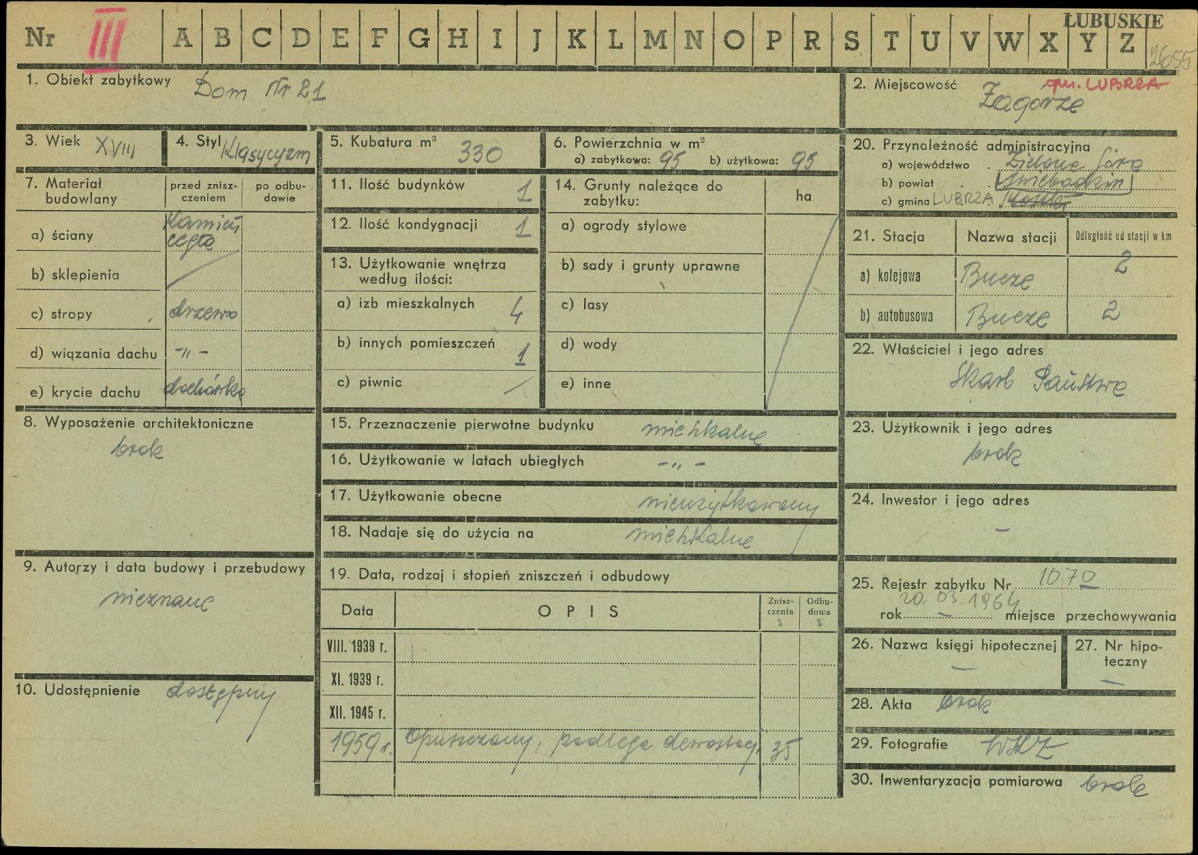 LUBUSKIE
Nr III A B C D E F G H I J K L M N O P R S T U V W X Y Z 2655
1. Obiekt zabytkowy Dom Nr 21
2. Miejscowość gm. LUBRZA
Zagórze
3. Wiek XVIII
4. Styl Klasycyzm
5. Kubatura m³ 330
6. Powierzchnia w m²
a) zabytkowa: 95 b) użytkowa: 95
7. Materiał budowlany
przed zniszczeniem
po odbudowie
a) ściany Kamień cegła
b) sklepienia /
c) stropy drzewo
d) wiązania dachu -"-
e) krycie dachu dachówka
8. Wyposażenie architektoniczne
brak
9. Autorzy i data budowy i przebudowy
nieznane
10. Udostępnienie dostępny
11. Ilość budynków 1
12. Ilość kondygnacji 1
13. Użytkowanie wnętrza
według ilości:
a) izb mieszkalnych 4
b) innych pomieszczeń 1
c) piwnic /
14. Grunty należące do
zabytku:
ha
a) ogrody stylowe
b) sady i grunty uprawne
c) lasy
d) wody
e) inne
15. Przeznaczenie pierwotne budynku miehkalne
16. Użytkowanie w latach ubiegłych -"-
17. Użytkowanie obecne nieużytkowany
18. Nadaje się do użycia na miehkalne
19. Data, rodzaj i stopień zniszczeń i odbudowy
Data OPIS Zniszczenia % Odbudowa %
VIII. 1939 r.
XI. 1939 r.
XII. 1945 r.
1959 r. opuszczony, podlega dewastacj. 35
20. Przynależność administracyjna
a) województwo Zielona Góra
b) powiat Świebodzin
c) gmina LUBRZA
21. Stacja Nazwa stacji Odległość od stacji w km
a) kolejowa Bucze 2
b) autobusowa Bucze 2
22. Właściciel i jego adres
Skarb Państwa
23. Użytkownik i jego adres
brak
24. Inwestor i jego adres
–
25. Rejestr zabytku Nr 1070
20.03.1964
rok – miejsce przechowywania
26. Nazwa księgi hipotecznej
–
27. Nr hipoteczny
–
28. Akta brak
29. Fotografie WKZ
30. Inwentaryzacja pomiarowa brak